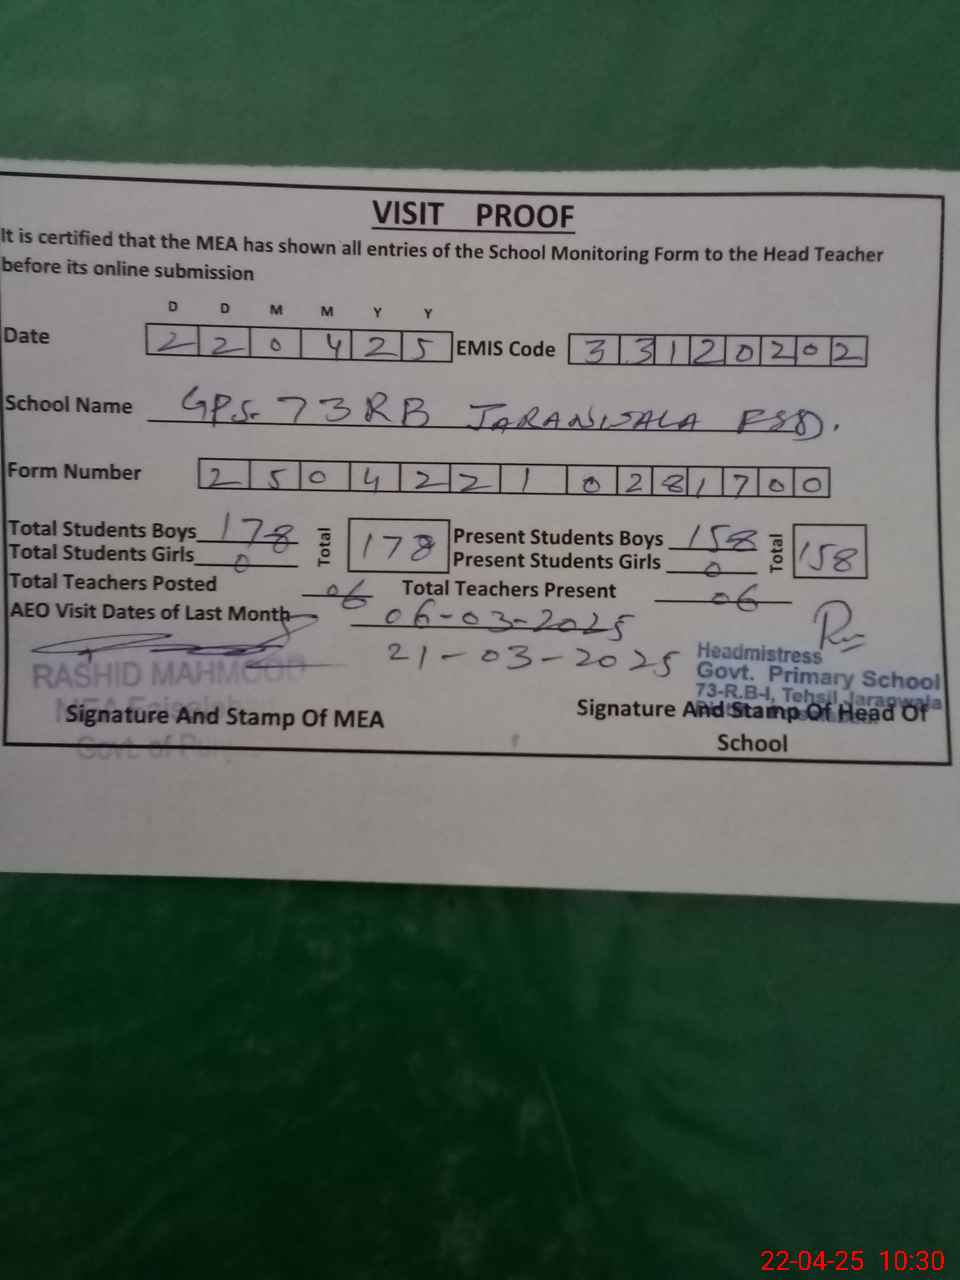 VISIT PROOF
It is certified that the MEA has shown all entries of the School Monitoring Form to the Head Teacher
before its online submission
D D M M Y Y
Date 2 2 0 4 2 5 EMIS Code 3 3 1 2 0 2 0 2
School Name GPS. 73 RB JARANWALA FSD.
Form Number 2 5 0 4 2 2 1 0 2 8 1 7 0 0
Total Students Boys 178 Total 178 Present Students Boys 158 Total 158
Total Students Girls 0 Present Students Girls 0
Total Teachers Posted 06 Total Teachers Present 06
AEO Visit Dates of Last Month 06-03-2025
21-03-2025
Headmistress
RASHID MAHMOOD Govt. Primary School
73-R.B-I, Tehsil Jaranwala
Signature And Stamp Of MEA Signature And Stamp Of Head Of
School
Govt. of
22-04-25 10:30